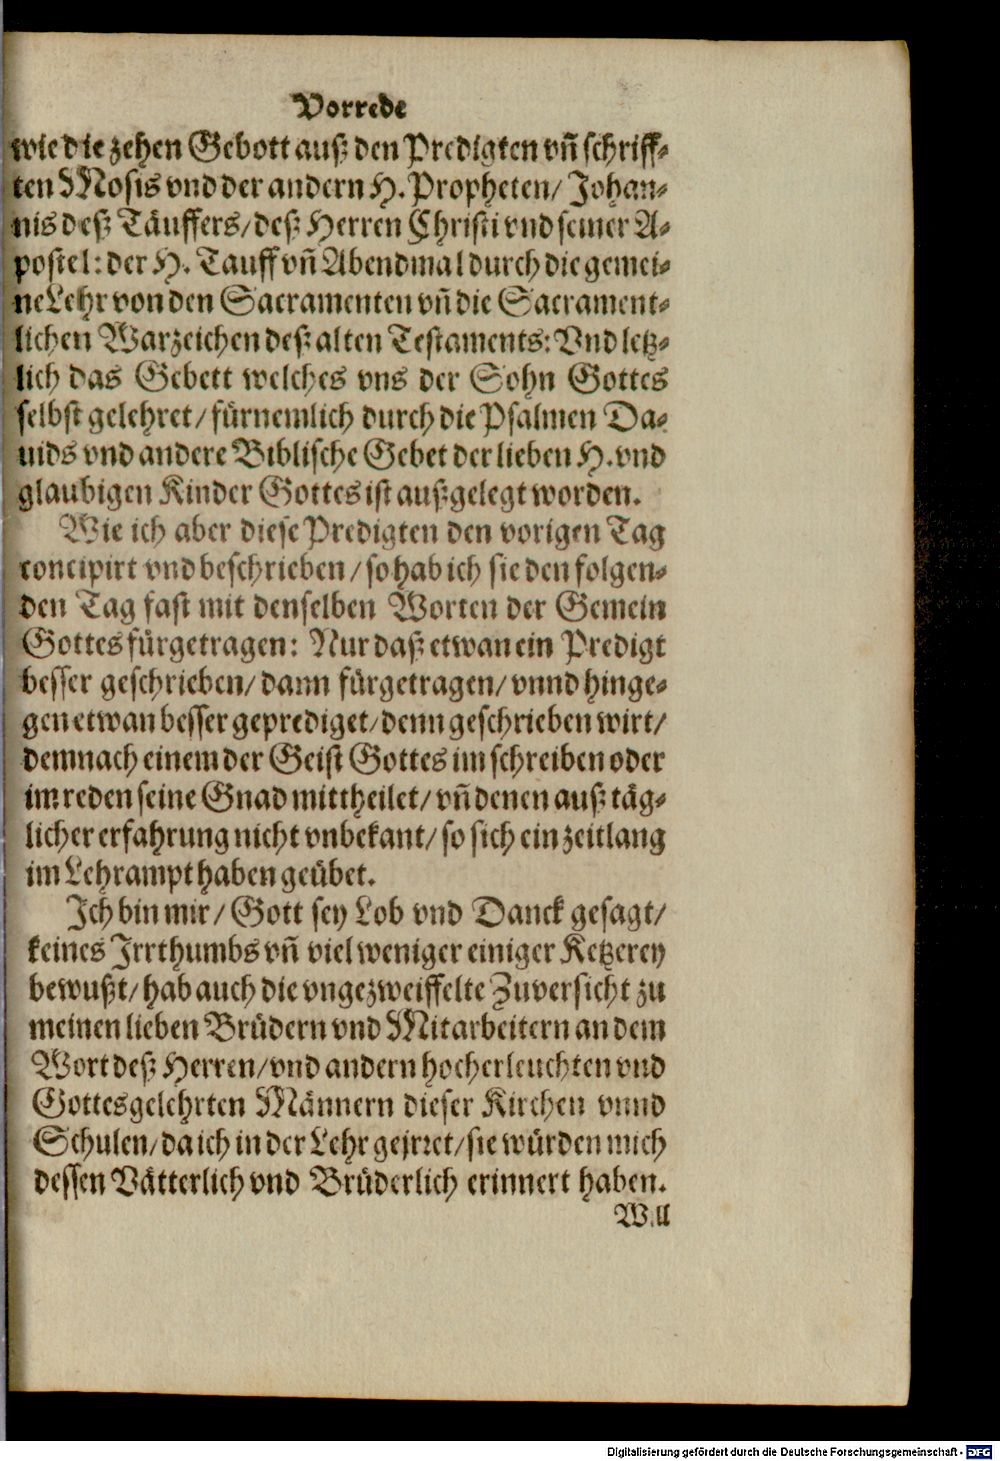 Vorrede
wie die zehen Gebott auß den Predigten vn̄ schriff-
ten Mosis vnd der andern H. Propheten/ Johan-
nis deß Täuffers/ deß Herren Christi vnd seiner A-
postel: der H. Tauff vn̄ Abendmal durch die gemei-
ne Lehr von den Sacramenten vn̄ die Sacrament-
lichen Warzeichen deß alten Testaments: Vnd letz-
lich das Gebett welches vns der Sohn Gottes
selbst gelehret/ fürnemlich durch die Psalmen Da-
uids vnd andere Biblische Gebet der lieben H. vnd
glaubigen Kinder Gottes ist außgelegt worden.
Wie ich aber diese Predigten den vorigen Tag
concipirt vnd beschrieben/ so hab ich sie den folgen-
den Tag fast mit denselben Worten der Gemein
Gottes fürgetragen: Nur daß etwan ein Predigt
besser geschrieben/ dann fürgetragen/ vnnd hinge-
gen etwan besser geprediget/ denn geschrieben wirt/
demnach einem der Geist Gottes im schreiben oder
im reden seine Gnad mittheilet/ vn̄ denen auß täg-
licher erfahrung nicht vnbekant/ so sich ein zeitlang
im Lehrampt haben geübet.
Ich bin mir/ Gott sey Lob vnd Danck gesagt/
keines Irrthumbs vn̄ viel weniger einiger Ketzerey
bewußt/ hab auch die vngezweiffelte Zuversicht zu
meinen lieben Brüdern vnd Mitarbeitern an dem
Wort deß Herren/ vnd andern hocherleuchten vnd
Gottesgelehrten Männern dieser Kirchen vnnd
Schulen/ da ich in der Lehr gejrret/ sie würden mich
dessen Vätterlich vnd Brüderlich erinnert haben.
Will
Digitalisierung gefördert durch die Deutsche Forschungsgemeinschaft - DFG